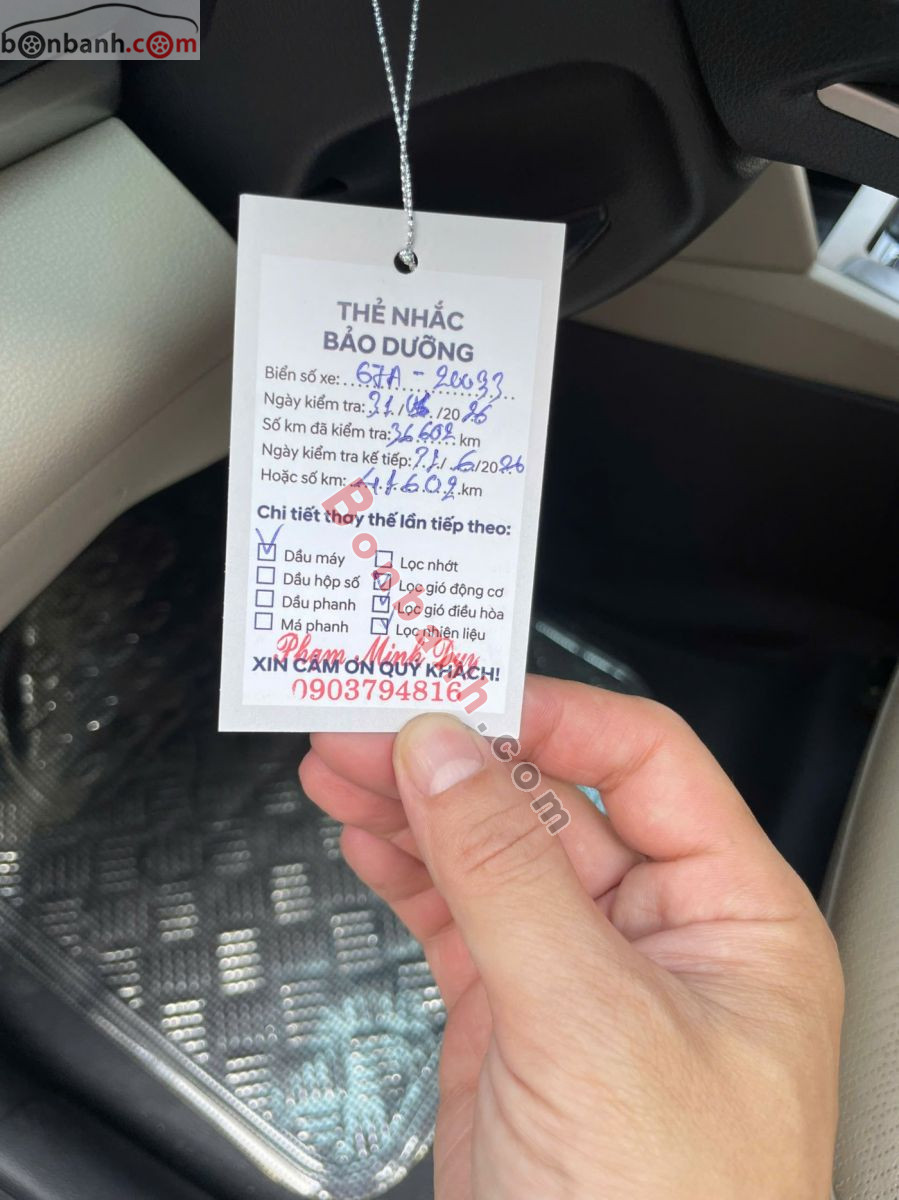 bonbanh.com
THẺ NHẮC
BẢO DƯỠNG
Biển số xe: 67A - 20033
Ngày kiểm tra: 31/ /2026
Số km đã kiểm tra: 36602 km
Ngày kiểm tra kế tiếp: 31/6/2026
Hoặc số km: 41602 km
Chi tiết thay thế lần tiếp theo:
Dầu máy Lọc nhớt
Dầu hộp số Lọc gió động cơ
Dầu phanh Lọc gió điều hòa
Má phanh Lọc nhiên liệu
Phạm Minh Duy
XIN CẢM ƠN QUÝ KHÁCH!
0903794816
Bonbanh.com